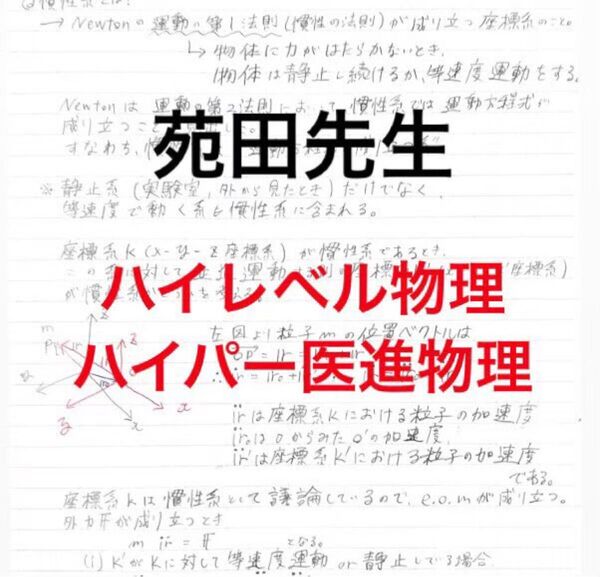 慣性系とは?
→ Newtonの運動の第1法則(慣性の法則)が成り立つ座標系のこと。
↳ 物体に力がはたらかないとき、
物体は静止し続けるか、等速度運動をする。
Newtonは運動の第2法則において、慣性系では運動方程式が
成り立つこと
すなわち、
苑田先生
※ 静止系(実験室,外から見たとき)だけでなく、
等速度で動く系も慣性系に含まれる。
座標系K(x-y-z座標系)が慣性系であるとき、
ハイレベル物理
左図より粒子mの位置ベクトルは
ハイパー医進物理
r̈は座標系Kにおける粒子の加速度
r̈₀はOからみたO'の加速度、
r̈'は座標系K'における粒子の加速度
である。
座標系Kは慣性系として議論しているので、e.o.mが成り立つ。
外力Fが成り立つとき
m r̈ = F となる。
(i) K'がKに対して等速度運動or静止している場合